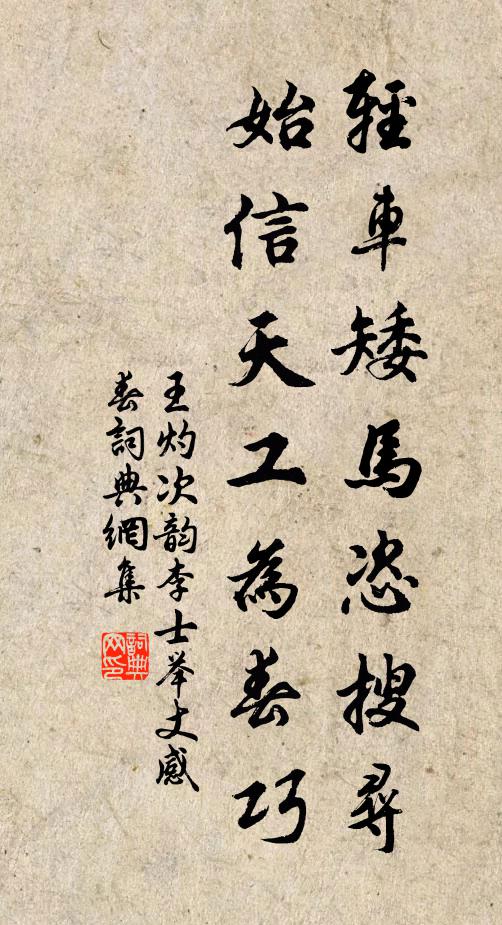 輕車矮馬恣搜尋
始信天工為春巧
王灼次韵李士举丈感
春詞典網集
詞典网印